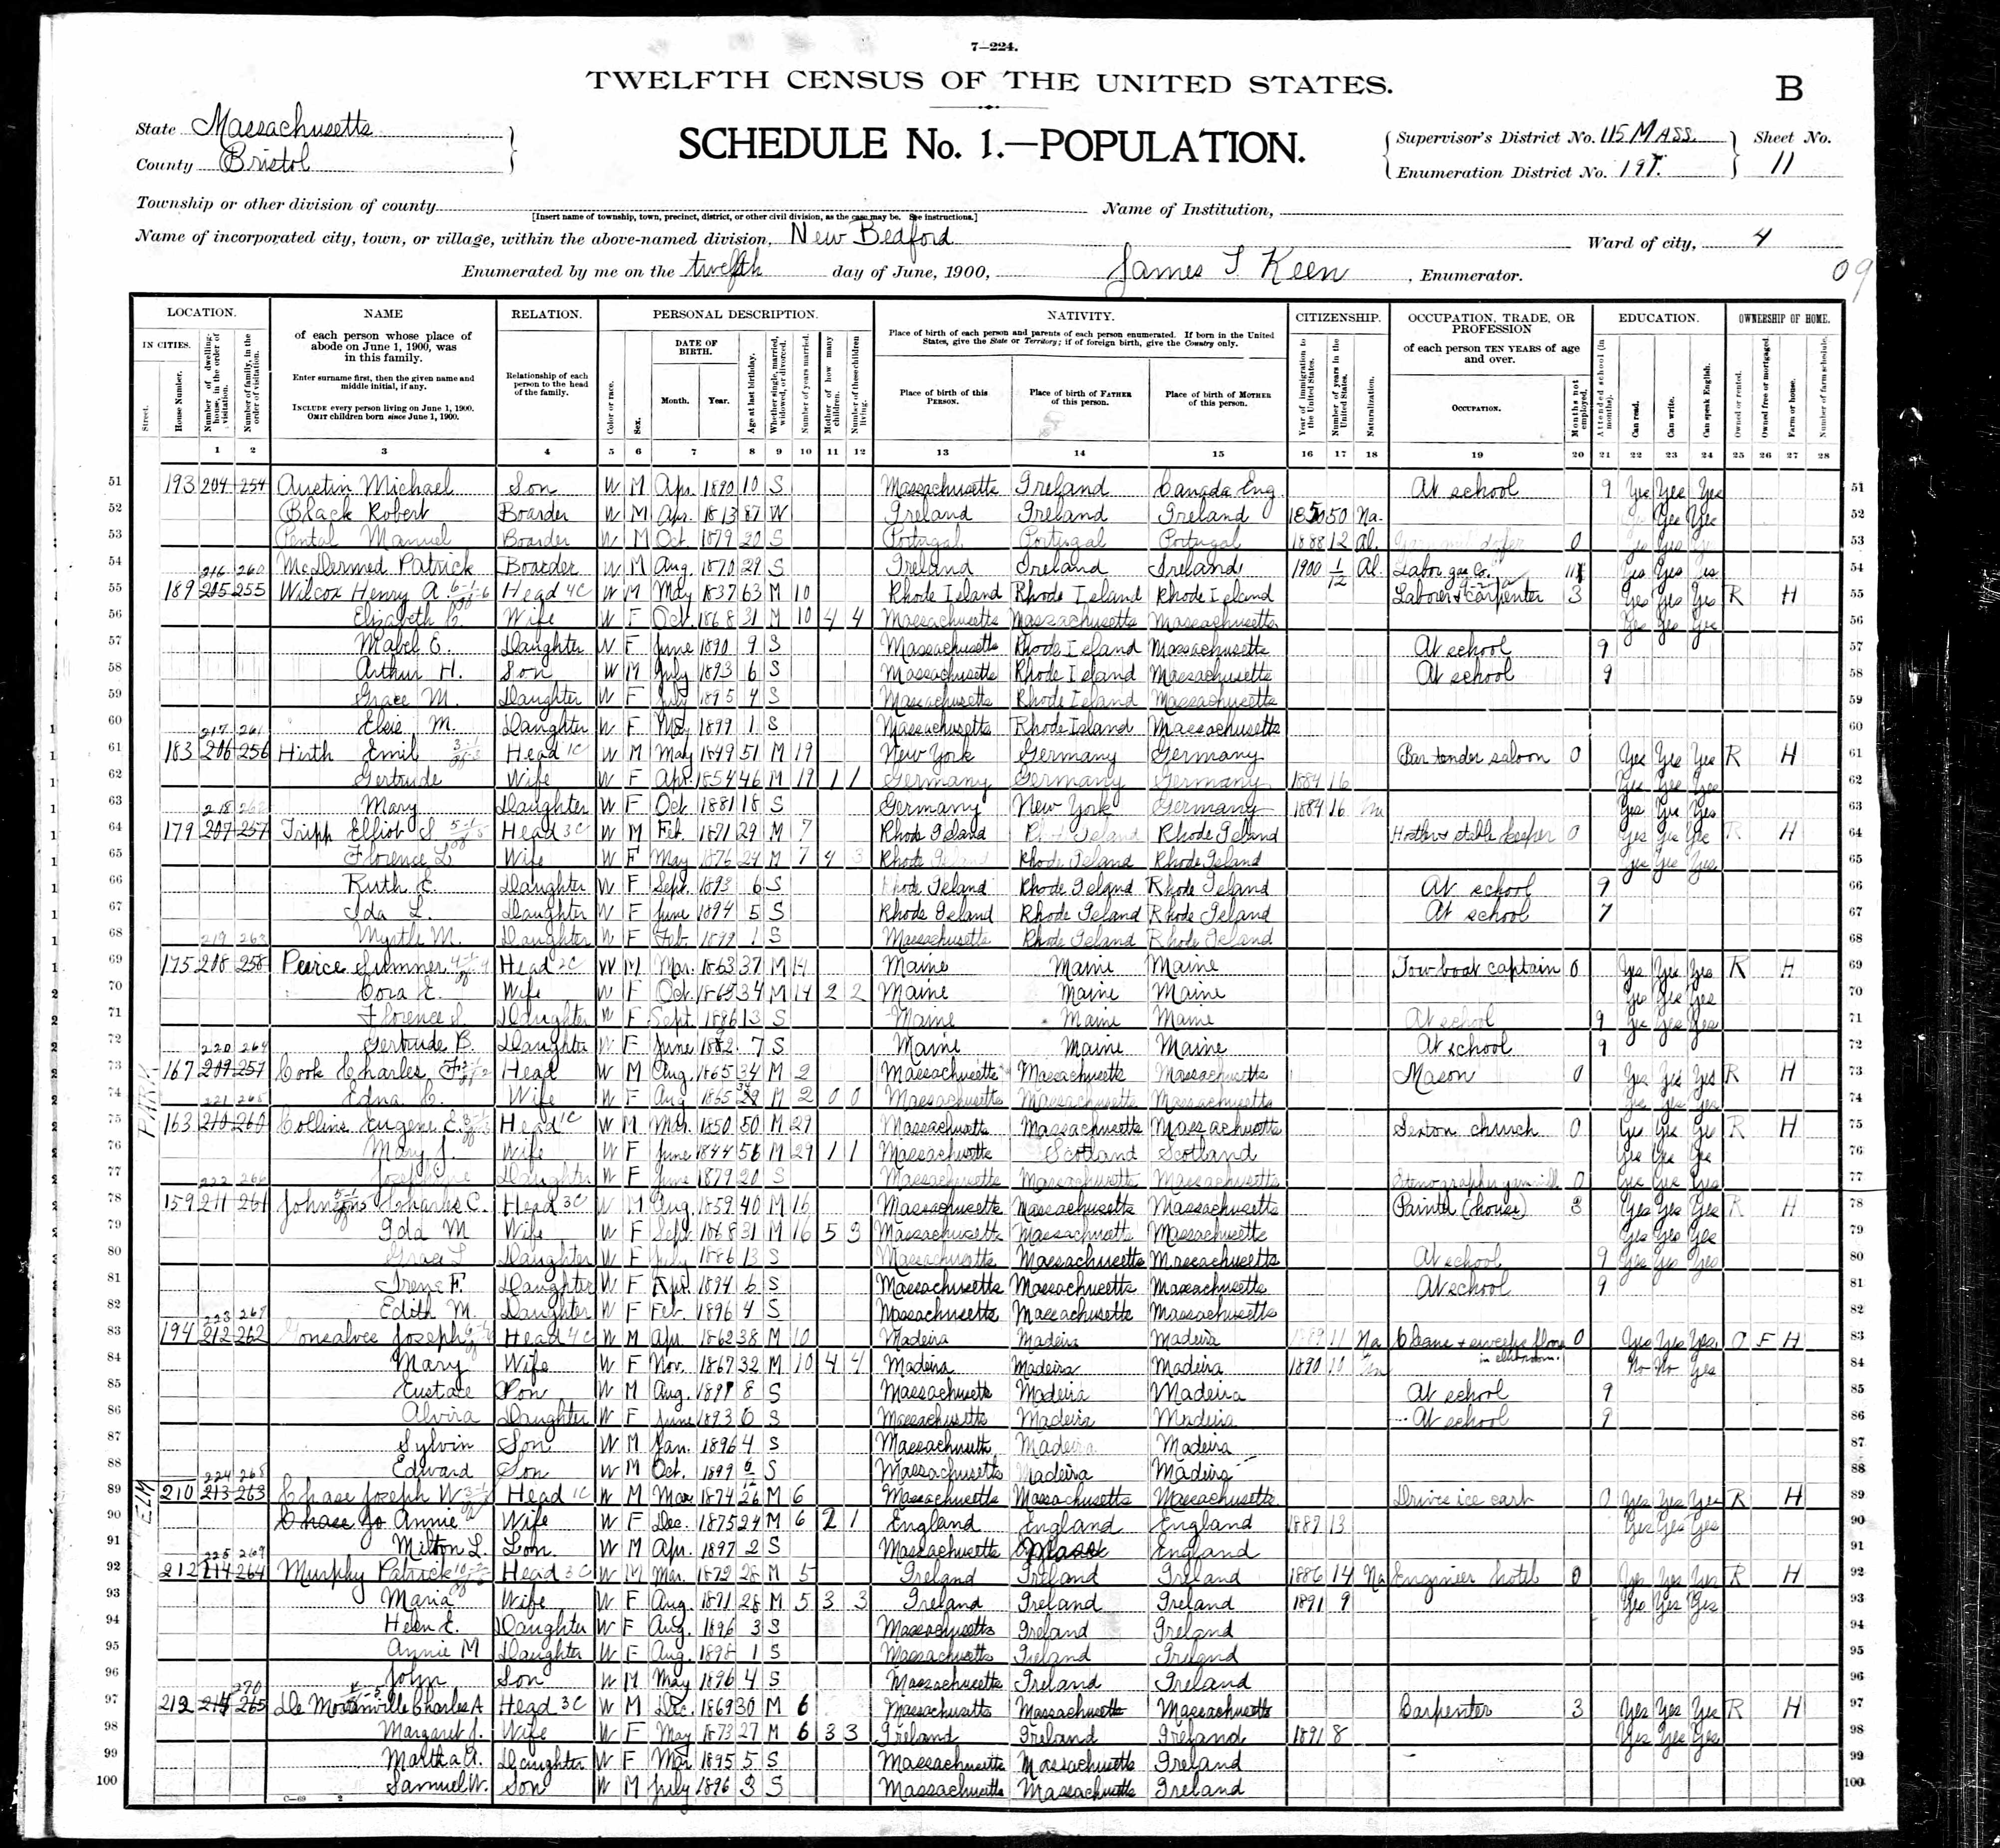 7—224.
TWELFTH CENSUS OF THE UNITED STATES.
B
State Massachusetts
County Bristol
SCHEDULE No. 1.—POPULATION.
Supervisor's District No. 115 MASS. Sheet No.
Enumeration District No. 197. 11
Township or other division of county
[Insert name of township, town, precinct, district, or other civil division, as the case may be. See instructions.]
Name of Institution,
Name of incorporated city, town, or village, within the above-named division, New Bedford
Ward of city, 4
Enumerated by me on the twelfth day of June, 1900, James T Keen, Enumerator.
09
LOCATION. NAME RELATION. PERSONAL DESCRIPTION. NATIVITY. CITIZENSHIP. OCCUPATION, TRADE, OR PROFESSION EDUCATION. OWNERSHIP OF HOME.
IN CITIES. Street. House Number. Number of dwelling-house, in the order of visitation. Number of family, in the order of visitation.
of each person whose place of abode on June 1, 1900, was in this family.
Enter surname first, then the given name and middle initial, if any.
INCLUDE every person living on June 1, 1900. OMIT children born since June 1, 1900.
Relationship of each person to the head of the family.
Color or race. Sex. DATE OF BIRTH. Month. Year. Age at last birthday. Whether single, married, widowed, or divorced. Number of years married. Mother of how many children. Number of these children living.
Place of birth of each person and parents of each person enumerated. If born in the United States, give the State or Territory; if of foreign birth, give the Country only.
Place of birth of this PERSON. Place of birth of FATHER of this person. Place of birth of MOTHER of this person.
Year of immigration to the United States. Number of years in the United States. Naturalization.
of each person TEN YEARS of age and over.
OCCUPATION. Months not employed.
Attended school (in months). Can read. Can write. Can speak English.
Owned or rented. Owned free or mortgaged. Farm or house. Number of farm schedule.
1 2 3 4 5 6 7 8 9 10 11 12 13 14 15 16 17 18 19 20 21 22 23 24 25 26 27 28
51 193 204 254 Austin Michael Son W M Apr. 1890 10 S Massachusetts Ireland Canada Eng At school 9 Yes Yes Yes 51
52 Black Robert Boarder W M Apr. 1813 87 W Ireland Ireland Ireland 1850 50 Na. Yes Yes 52
53 Pental Manuel Boarder W M Oct 1879 20 S Portugal Portugal Portugal 1888 12 Al. 0 Yes 53
216 260
54 McDermed Patrick Boarder W M Aug. 1870 29 S Ireland Ireland Ireland 1900 1/12 Al Labor gas Co. 11 Yes Yes 54
55 189 205 255 Wilcox Henry A. Head 4C W M May 1837 63 M 10 Rhode Island Rhode Island Rhode Island Laborer carpenter 3 Yes Yes Yes R H 55
56 Elizabeth Wife W F Oct 1868 31 M 10 4 4 Massachusetts Massachusetts Massachusetts Yes Yes Yes 56
57 Mabel E. Daughter W F June 1890 9 S Massachusetts Rhode Island Massachusetts At school 9 57
58 Arthur H. Son W M July 1893 6 S Massachusetts Rhode Island Massachusetts At school 9 58
59 Grace M. Daughter W F July 1895 4 S Massachusetts Rhode Island Massachusetts 59
60 217 261 Elsie M. Daughter W F May 1899 1 S Massachusetts Rhode Island Massachusetts 60
61 183 206 256 Hirth Emil Head 1C W M May 1849 51 M 19 New York Germany Germany Bar tender saloon 0 Yes Yes Yes R H 61
62 Gertrude Wife W F Apr. 1854 46 M 19 1 1 Germany Germany Germany 1884 16 Yes Yes Yes 62
63 218 262 Mary Daughter W F Oct 1881 18 S Germany New York Germany 1884 16 Yes Yes Yes 63
64 179 207 257 Tripp Elliot S Head 3C W M Feb. 1871 29 M 7 Rhode Island Rhode Island Rhode Island Hostler stable keeper 0 Yes Yes Yes R H 64
65 Florence L Wife W F May 1876 24 M 7 4 3 Rhode Island Rhode Island Rhode Island Yes Yes Yes 65
66 Ruth E. Daughter W F Sept. 1893 6 S Rhode Island Rhode Island Rhode Island At school 9 66
67 Ida L. Daughter W F June 1894 5 S Rhode Island Rhode Island Rhode Island At school 7 67
68 219 263 Myrtle M. Daughter W F Feb. 1899 1 S Massachusetts Rhode Island Rhode Island 68
69 175 208 258 Peirce Sumner Head 2C W M Mar. 1863 37 M 14 Maine Maine Maine Tow boat captain 0 Yes Yes Yes R H 69
70 Cora E. Wife W F Oct. 1865 34 M 14 2 2 Maine Maine Maine Yes Yes Yes 70
71 Florence S. Daughter W F Sept 1886 13 S Maine Maine Maine At school 9 Yes Yes Yes 71
72 220 264 Gertrude B. Daughter W F June 1892 7 S Maine Maine Maine At school 9 72
PARK
73 167 209 259 Cook Charles F Head W M Aug. 1865 34 M 2 Massachusetts Massachusetts Massachusetts Mason 0 Yes Yes Yes R H 73
74 221 265 Edna C. Wife W F Aug 1865 M 2 0 0 Massachusetts Massachusetts Massachusetts Yes Yes Yes 74
75 163 210 260 Collins Eugene E. Head 1C W M Mar. 1850 50 M 29 Massachusetts Massachusetts Massachusetts Sexton church 0 Yes Yes Yes R H 75
76 Mary J. Wife W F June 1844 56 M 29 1 1 Massachusetts Scotland Scotland Yes Yes Yes 76
77 222 266 Josephine Daughter W F June 1879 20 S Massachusetts Massachusetts Massachusetts 0 Yes Yes Yes 77
78 159 211 261 Johnson Charles C. Head 3C W M Aug. 1859 40 M 16 Massachusetts Massachusetts Massachusetts Painter (house) 3 Yes Yes Yes R H 78
79 Ida M Wife W F Sept 1868 31 M 16 5 3 Massachusetts Massachusetts Massachusetts Yes Yes Yes 79
80 Grace L Daughter W F July 1886 13 S Massachusetts Massachusetts Massachusetts At school 9 Yes Yes Yes 80
81 Irene F. Daughter W F Apr. 1894 6 S Massachusetts Massachusetts Massachusetts At school 9 81
82 223 267 Edith M. Daughter W F Feb. 1896 4 S Massachusetts Massachusetts Massachusetts 82
83 194 212 262 Gonsalves Joseph Head 4C W M Apr. 1862 38 M 10 Madeira Madeira Madeira 1889 11 Na Cleans & sweeps floor 0 Yes Yes Yes. O F H 83
84 Mary Wife W F Nov. 1867 32 M 10 4 4 Madeira Madeira Madeira 1890 10 No No Yes 84
85 Eustace Son W M Aug. 1891 8 S Massachusetts Madeira Madeira At school 9 85
86 Alvira Daughter W F June 1893 6 S Massachusetts Madeira Madeira At school 9 86
87 Sylvin Son W M Jan. 1896 4 S Massachusetts Madeira Madeira 87
88 224 268 Edward Son W M Oct. 1899 6/12 S Massachusetts Madeira Madeira 88
ELM
89 210 213 263 Chase Joseph W Head 1C W M Mar 1874 26 M 6 Massachusetts Massachusetts Massachusetts Drives ice cart 0 Yes Yes Yes R H 89
90 Chase Jo Annie Wife W F Dec. 1875 24 M 6 2 1 England England England 1887 13 Yes Yes Yes 90
91 225 269 Milton L. Son W M Apr. 1897 2 S Massachusetts Mass England 91
92 212 214 264 Murphy Patrick Head 3C W M Mar. 1872 28 M 5 Ireland Ireland Ireland 1886 14 Na Engineer hotel 0 Yes Yes Yes R H 92
93 Maria Wife W F Aug. 1871 28 M 5 3 3 Ireland Ireland Ireland 1891 9 Yes Yes Yes 93
94 Helen E. Daughter W F Aug. 1896 3 S Massachusetts Ireland Ireland 94
95 Annie M Daughter W F Aug. 1898 1 S Massachusetts Ireland Ireland 95
96 270 John Son W M May 1896 4 S Massachusetts Ireland Ireland 96
97 212 214 265 Charles A Head 3C W M Dec. 1869 30 M 6 Massachusetts Massachusetts Massachusetts Carpenter 3 Yes Yes Yes R H 97
98 Margaret J. Wife W F May 1873 27 M 6 3 3 Ireland Ireland Ireland 1891 8 Yes Yes Yes 98
99 Martha A. Daughter W F Mar 1895 5 S Massachusetts Massachusetts Ireland 99
100 Samuel W. Son W M July 1896 3 S Massachusetts Massachusetts Ireland 100
C—69 2